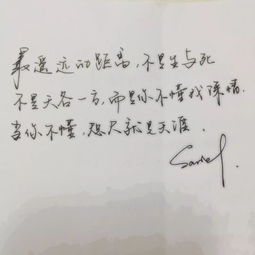 最遥远的距离，不是生与死
不是天各一方，而是你不懂我深情．
当你不懂，咫尺就是天涯．